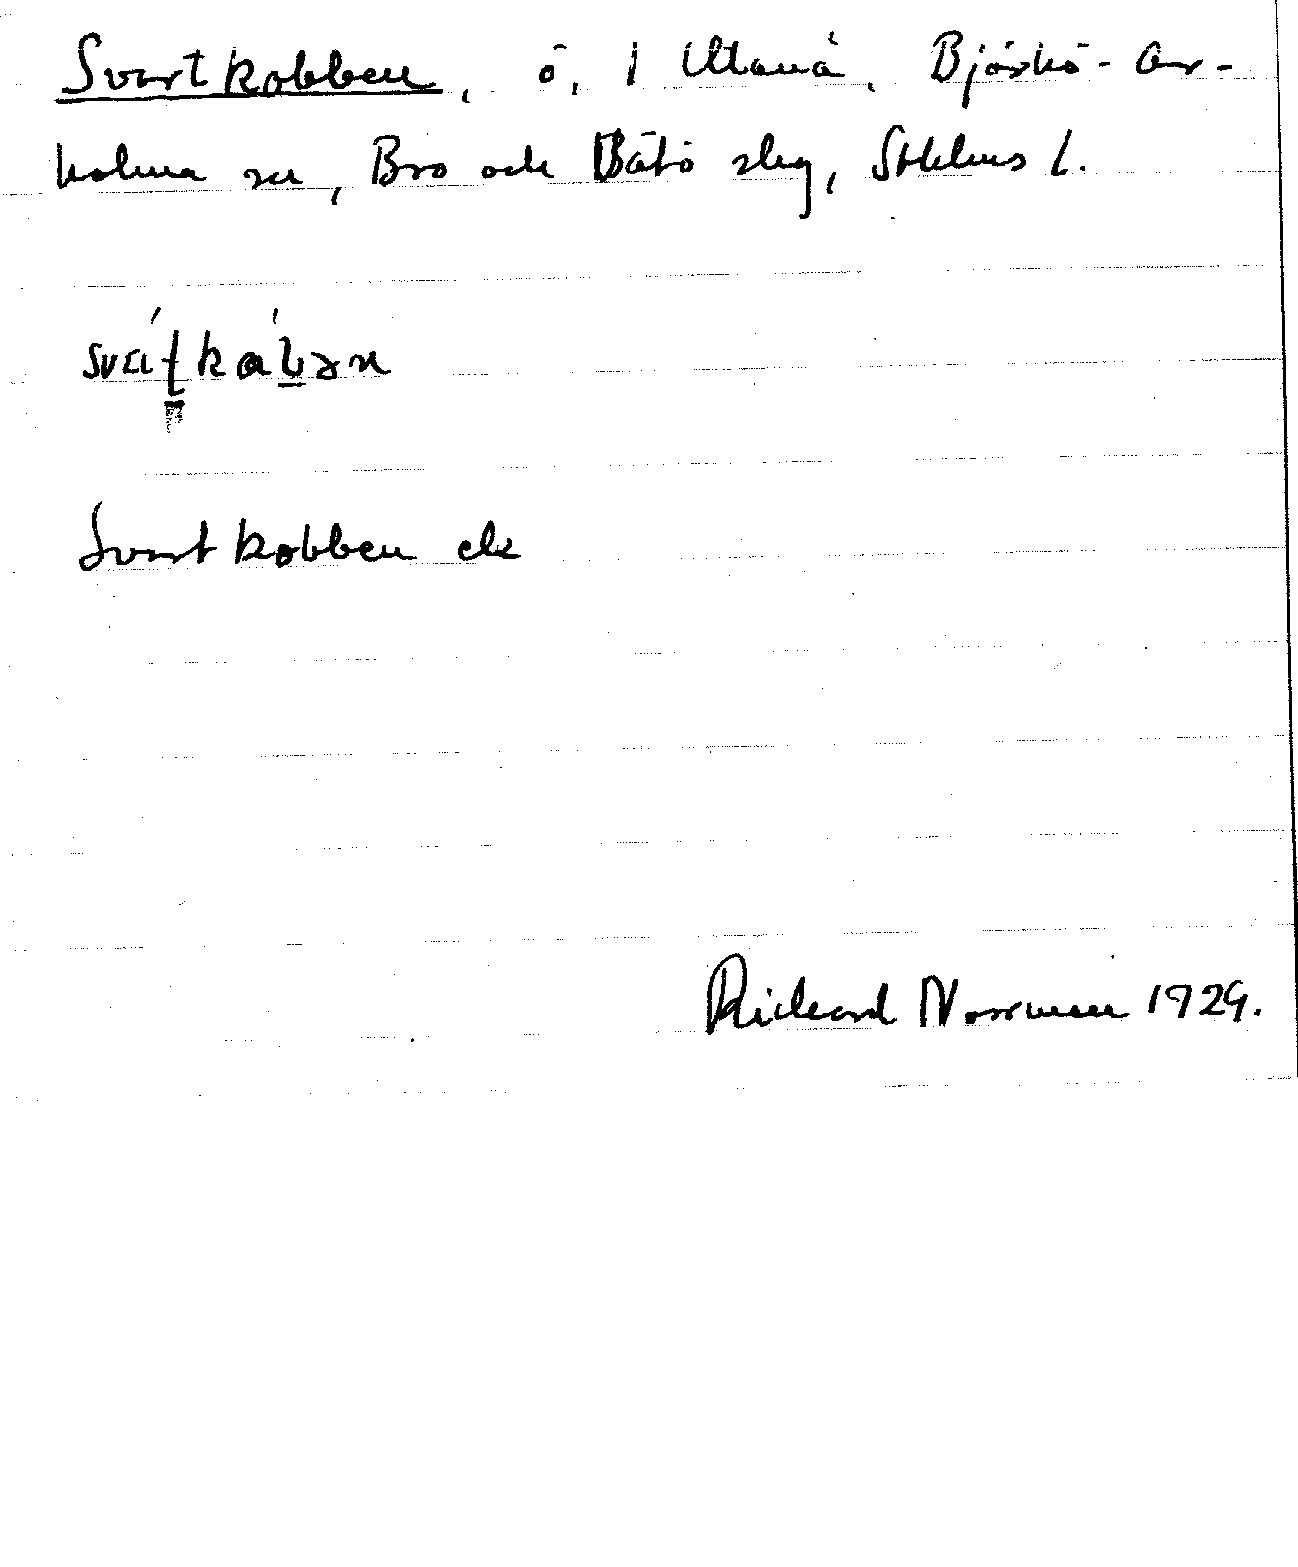 Svartkobben, ö, 1 Utanå, Björkö-Ar-
holma sn, Bro och Vätö slg, Sthlms l.
Svartkobben ek
Rickard Norrman 1929.